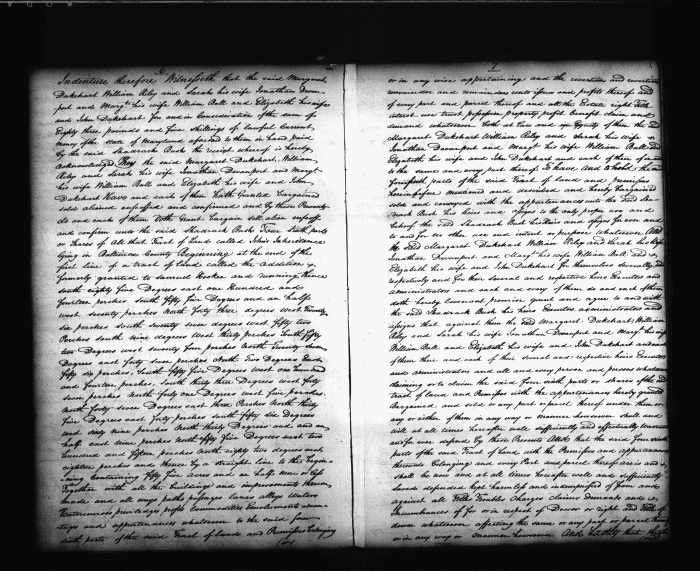 Indenture therefore Witnesseth that the said Margaret
Dukehart William Riley and Sarah his wife Jonathan Daven-
port and Margt his wife William Ball and Elizabeth his wife
and John Dukehart for and in Consideration of the sum of
Eighty three pounds and five shillings of lawful Current
money of the State of Maryland to them in hand paid
by the said Shadrach Bush the receipt whereof is hereby
acknowledged They the said Margaret Dukehart, William
Riley and Sarah his wife Jonathan Davenport and Margt
his wife William Ball and Elizabeth his wife and John
Dukehart Have and each of them Hath Granted Bargained
sold aliened enfeoffed and confirmed and by these Presents
do and each of them Doth Grant Bargain sell alien enfeoff
and confirm unto the said Shadrach Bush Four sixth parts
or shares of All that Tract of Land called John's Inheritance
lying in Baltimore County Beginning at the end of the
first line of a tract of Land called the addition
formerly granted to Samuel Hooker and running thence
south eighty five Degrees east one Hundred and
fourteen perches South fifty five Degrees and an half
west seventy perches North forty three degrees west Twenty
six perches South seventy seven degrees west fifty two
Perches south nine degrees west thirty perches South fifty
two Degrees west seventy four perches North Twenty seven
Degrees east forty seven perches North Two Degrees East
fifty six perches, South fifty five Degrees west one hundred
and fourteen perches, South thirty three Degrees west forty
seven perches North forty one Degrees west five perches
North forty seven Degrees east three Perches North thirty
five Degrees east forty perches south fifty six Degrees
west sixty nine perches North thirty Degrees and an
half east nine perches North fifty five Degrees east two
hundred and fifteen perches North eighty two degrees east
eighteen perches and thence by a straight line to the Begin-
-ning Containing fifty five Acres and an half more or less
Together with all the buildings and improvements thereon
made and all ways paths passages lanes alleys Waters
Watercourses priviledges profits Commodities Emoluments advan-
tages and appurtenances whatsoever to the said four
sixth parts of the said Tract of Land and Premises belonging
(or)
7
or in any wise appertaining and the reversion and reversions
remainder and remainders rents issues and profits thereof and
of every part and parcel thereof and all the Estate right Title
interest use trust possession property profit benefit claim and
demand whatsoever both at law and in Equity of them the said
Margaret Dukehart William Riley and Sarah his wife
Jonathan Davenport and Margt his wife William Ball and
Elizabeth his wife and John Dukehart and each of them of in and
to the same and every part thereof To Have And to Hold the said
four sixth parts of the said Tract of Land and Premises
hereinbefore mentioned and described and hereby bargained
sold and conveyed with the appurtenances unto the said Shad-
rach Bush his heirs and assigns to the only proper use and
behoof the said Shadrach Bush his heirs and assigns forever and
to and for no other use and intent or purpose whatsoever And
the said Margaret Dukehart William Riley and Sarah his wife
Jonathan Davenport and Margt his wife William Ball and
Elizabeth his wife and John Dukehart for themselves severally and
respectively and for their several and respective heirs Executors and
administrators and each and every of them do and each of them
doth hereby covenant, promise grant and agree to and with
the said Shadrach Bush his heirs Executors administrators and
assigns that against them the said Margaret Dukehart, William
Riley and Sarah his wife Jonathan Davenport and Margt his wife
William Ball and Elizabeth his wife and John Dukehart and each
of them their and each of their several and respective heirs Executors
and administrators and all and every person and persons whatsoever
claiming or to claim the said four sixth parts or shares of the said
tract of Land and Premises with the appurtenances hereby granted
Bargained and sold or any part or parcel thereof under them or
any or either of them in any way or manner whatsoever shall and
will at all times hereafter well sufficiently and effectually warrant
and for ever defend by these Presents And that the said four sixth
parts of the said Tract of Land with the Premises and appurtenances
thereunto belonging and every Part and parcel thereof are is and
shall be now and at all times hereafter well and sufficiently
saved defended kept harmless and indemnified of from and
against all Titles Troubles Charges Claims Demands and in-
cumbrances of for or in respect of Dower or right and Title of
dower whatsoever affecting the same or any part or parcel thereof
or in any way or manner howsoever And Lastly that